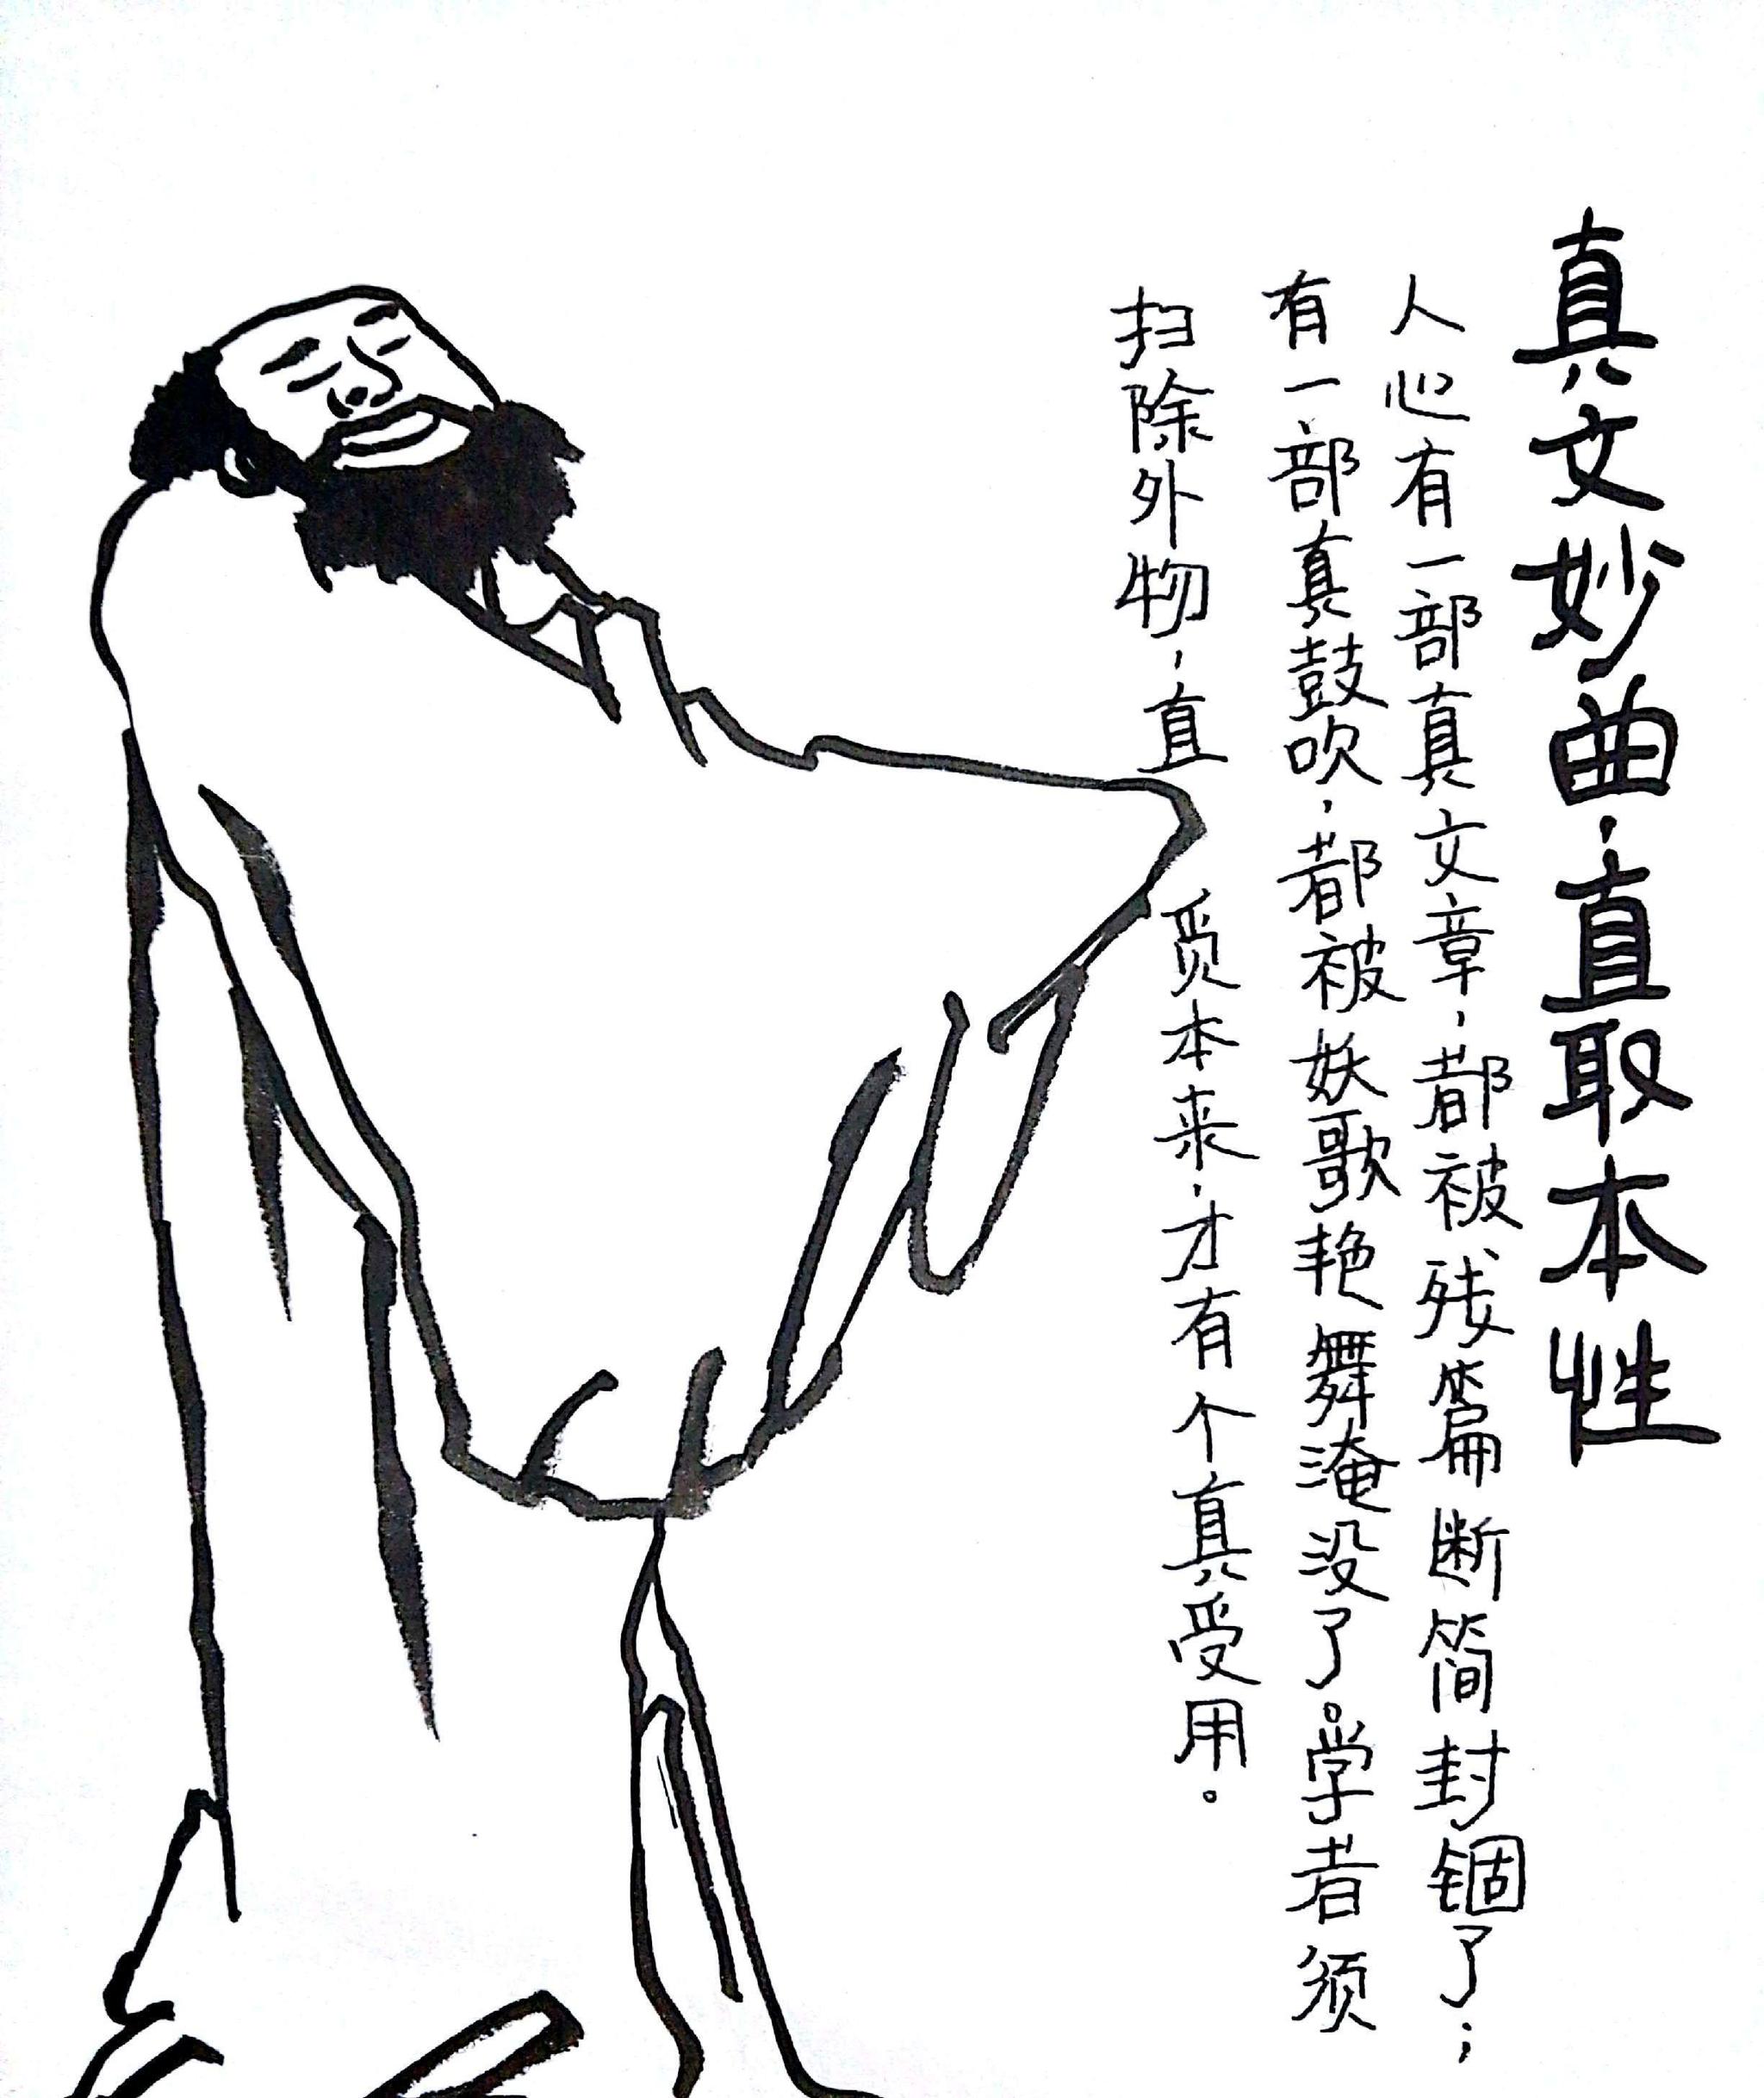 真文妙曲，直取本性
人心有一部真文章，都被残篇断简封锢了；
有一部真鼓吹，都被妖歌艳舞淹没了。学者须
扫除外物，直觅本来，才有个真受用。